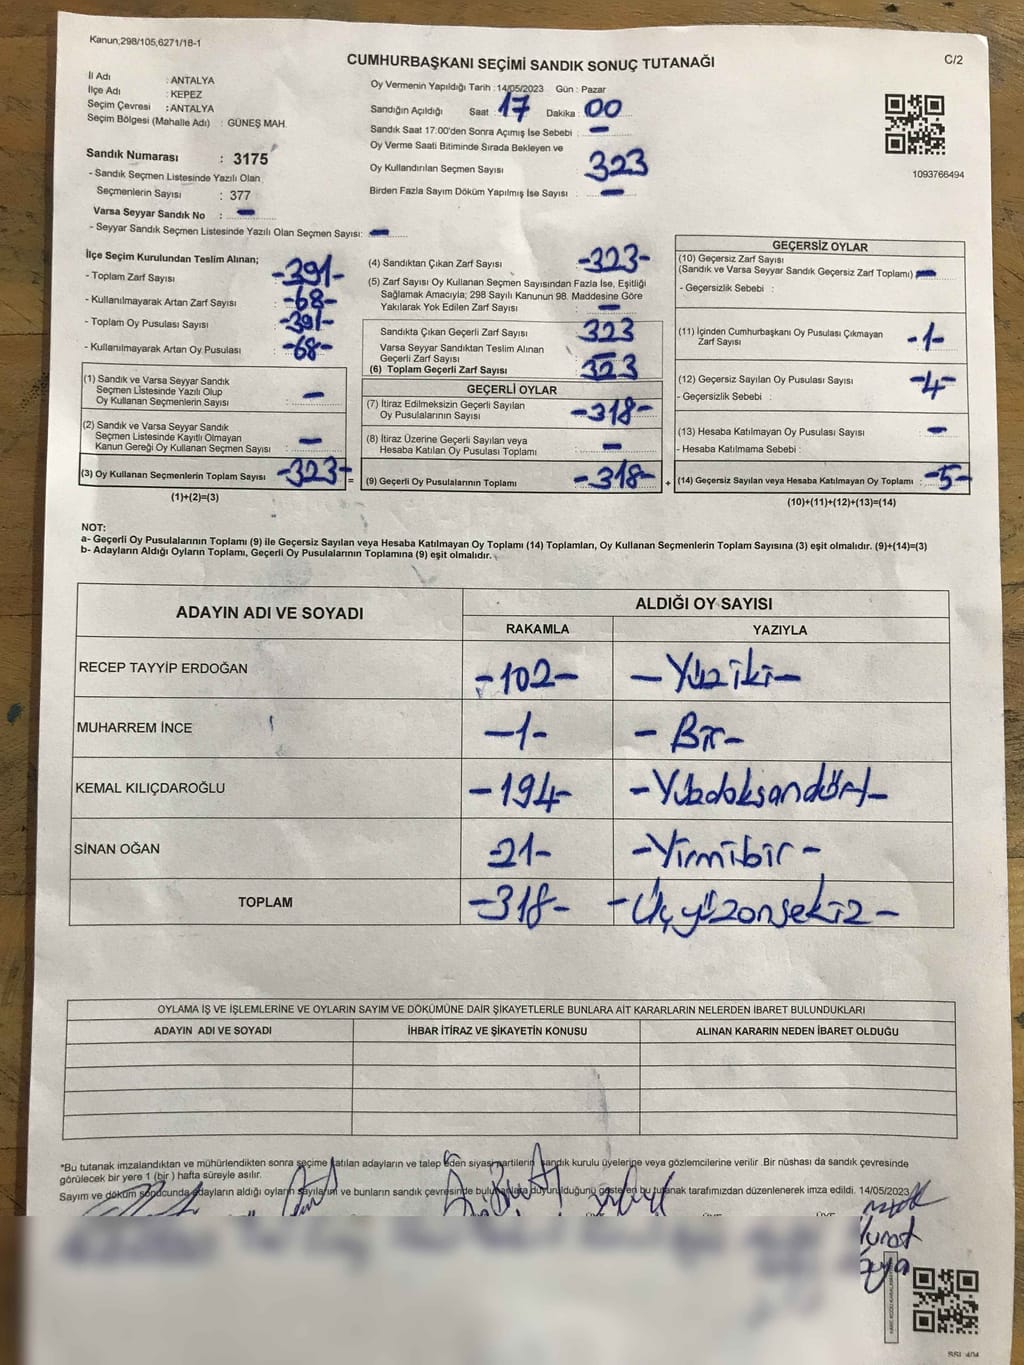 Kanun;298/105,6271/18-1
C/2
CUMHURBAŞKANI SEÇİMİ SANDIK SONUÇ TUTANAĞI
İl Adı : ANTALYA
İlçe Adı : KEPEZ
Seçim Çevresi : ANTALYA
Seçim Bölgesi (Mahalle Adı) : GÜNEŞ MAH.
Sandık Numarası : 3175
- Sandık Seçmen Listesinde Yazılı Olan
Seçmenlerin Sayısı : 377
Varsa Seyyar Sandık No : -
- Seyyar Sandık Seçmen Listesinde Yazılı Olan Seçmen Sayısı: -
Oy Vermenin Yapıldığı Tarih : 14/05/2023 Gün : Pazar
Sandığın Açıldığı Saat : 17 Dakika : 00
Sandık Saat 17:00'den Sonra Açımış İse Sebebi : -
Oy Verme Saati Bitiminde Sırada Bekleyen ve
Oy Kullandırılan Seçmen Sayısı 323
Birden Fazla Sayım Döküm Yapılmış İse Sayısı : -
1093766494
İlçe Seçim Kurulundan Teslim Alınan;
- Toplam Zarf Sayısı -391-
- Kullanılmayarak Artan Zarf Sayısı : -68-
- Toplam Oy Pusulası Sayısı : -391-
- Kullanılmayarak Artan Oy Pusulası : -68-
(1) Sandık ve Varsa Seyyar Sandık
Seçmen Listesinde Yazılı Olup
Oy Kullanan Seçmenlerin Sayısı : -
(2) Sandık ve Varsa Seyyar Sandık
Seçmen Listesinde Kayıtlı Olmayan
Kanun Gereği Oy Kullanan Seçmen Sayısı : -
(3) Oy Kullanan Seçmenlerin Toplam Sayısı -323- =
(1)+(2)=(3)
(4) Sandıktan Çıkan Zarf Sayısı -323-
(5) Zarf Sayısı Oy Kullanan Seçmen Sayısından Fazla İse, Eşitliği
Sağlamak Amacıyla; 298 Sayılı Kanunun 98. Maddesine Göre
Yakılarak Yok Edilen Zarf Sayısı : -
Sandıkta Çıkan Geçerli Zarf Sayısı 323
Varsa Seyyar Sandıktan Teslim Alınan
Geçerli Zarf Sayısı : -
(6) Toplam Geçerli Zarf Sayısı 323
GEÇERLİ OYLAR
(7) İtiraz Edilmeksizin Geçerli Sayılan
Oy Pusulalarının Sayısı -318-
(8) İtiraz Üzerine Geçerli Sayılan veya
Hesaba Katılan Oy Pusulası Toplamı : -
(9) Geçerli Oy Pusulalarının Toplamı -318- +
GEÇERSİZ OYLAR
(10) Geçersiz Zarf Sayısı
(Sandık ve Varsa Seyyar Sandık Geçersiz Zarf Toplamı) -
- Geçersizlik Sebebi :
(11) İçinden Cumhurbaşkanı Oy Pusulası Çıkmayan
Zarf Sayısı -1-
(12) Geçersiz Sayılan Oy Pusulası Sayısı -4-
- Geçersizlik Sebebi :
(13) Hesaba Katılmayan Oy Pusulası Sayısı -
- Hesaba Katılmama Sebebi :
(14) Geçersiz Sayılan veya Hesaba Katılmayan Oy Toplamı : -5-
(10)+(11)+(12)+(13)=(14)
NOT:
a- Geçerli Oy Pusulalarının Toplamı (9) ile Geçersiz Sayılan veya Hesaba Katılmayan Oy Toplamı (14) Toplamları, Oy Kullanan Seçmenlerin Toplam Sayısına (3) eşit olmalıdır. (9)+(14)=(3)
b- Adayların Aldığı Oyların Toplamı, Geçerli Oy Pusulalarının Toplamına (9) eşit olmalıdır.
ADAYIN ADI VE SOYADI ALDIĞI OY SAYISI
RAKAMLA YAZIYLA
RECEP TAYYİP ERDOĞAN -102- -Yüziki-
MUHARREM İNCE -1- -Bir-
KEMAL KILIÇDAROĞLU -194- -Yüzdoksandört-
SİNAN OĞAN -21- -Yirmibir-
TOPLAM -318- -Üçyüzonsekiz-
OYLAMA İŞ VE İŞLEMLERİNE VE OYLARIN SAYIM VE DÖKÜMÜNE DAİR ŞİKAYETLERLE BUNLARA AİT KARARLARIN NELERDEN İBARET BULUNDUKLARI
ADAYIN ADI VE SOYADI İHBAR İTİRAZ VE ŞİKAYETİN KONUSU ALINAN KARARIN NEDEN İBARET OLDUĞU
*Bu tutanak imzalandıktan ve mühürlendikten sonra seçime katılan adayların ve talep eden siyasi partilerin sandık kurulu üyelerine veya gözlemcilerine verilir .Bir nüshası da sandık çevresinde
görülecek bir yere 1 (bir ) hafta süreyle asılır.
Sayım ve döküm sonucunda adayların aldığı oyların sayılarını ve bunların sandık çevresinde bulunanlara duyurulduğunu gösteren bu tutanak tarafımızdan düzenlenerek imza edildi. 14/05/2023